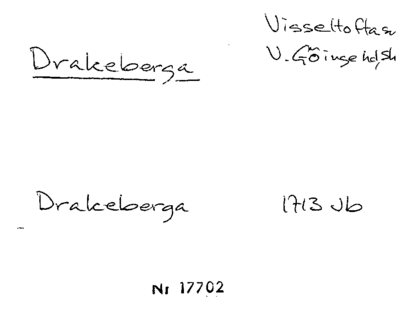 Visseltofta sn
Drakeberga
V. Göinge hd, Sk
Drakeberga 1713 Jb
Nr 17702